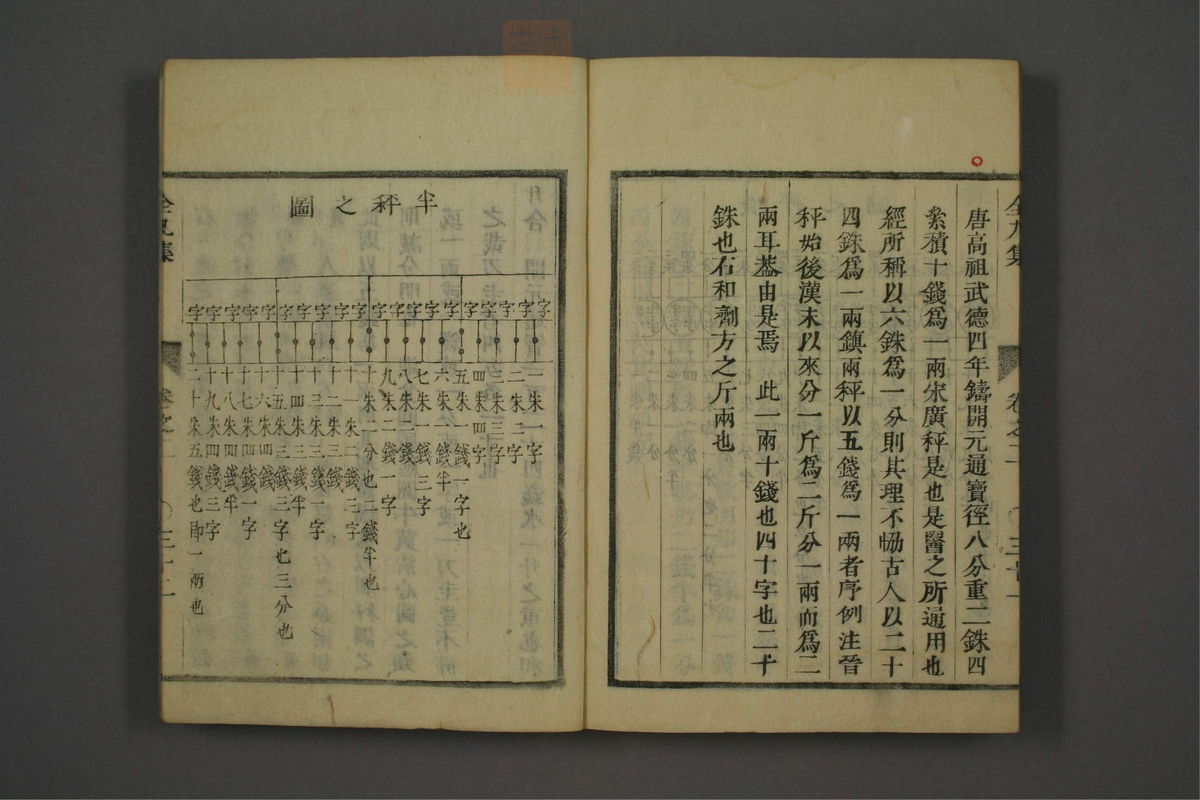 全九集 卷之二
唐高祖武德四年鑄開元通寶徑八分重二銖四
絫積十錢爲一兩宋廣秤是也是醫之所通用也
經所稱以六銖爲一分則其理不協古人以二十
四銖爲一兩鎮兩秤以五錢爲一兩者序例注晉
秤始後漢末以來分一斤爲二斤分一兩而爲二
兩耳葢由是焉 此一兩十錢也四十字也二十
銖也右和劑方之斤兩也
半秤之圖
字字字字字字字字字字字字字字字字字字字字
一朱一字
二朱二字
三朱三字
四朱四字
五朱一錢一字也
六朱一錢半
七朱一錢三字
八朱二錢
九朱二錢一字
十朱二分也二錢半也
十一朱二錢三字
十二朱三錢
十三朱三錢一字
十四朱三錢半
十五朱三錢三字也三分也
十六朱四錢
十七朱四錢一字
十八朱四錢半
十九朱四錢三字
二十朱五錢也即一兩也
全九集 卷之二 三十二